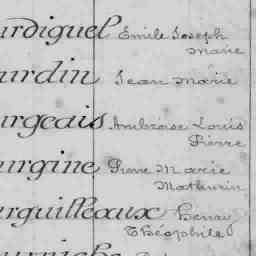 urdiguel Emile Joseph
Marie
urdin Jean Marie
urgeais Ambroise Louis
Pierre
urgine Pierre Marie
Mathurin
urguilleaux Henry
Théophile